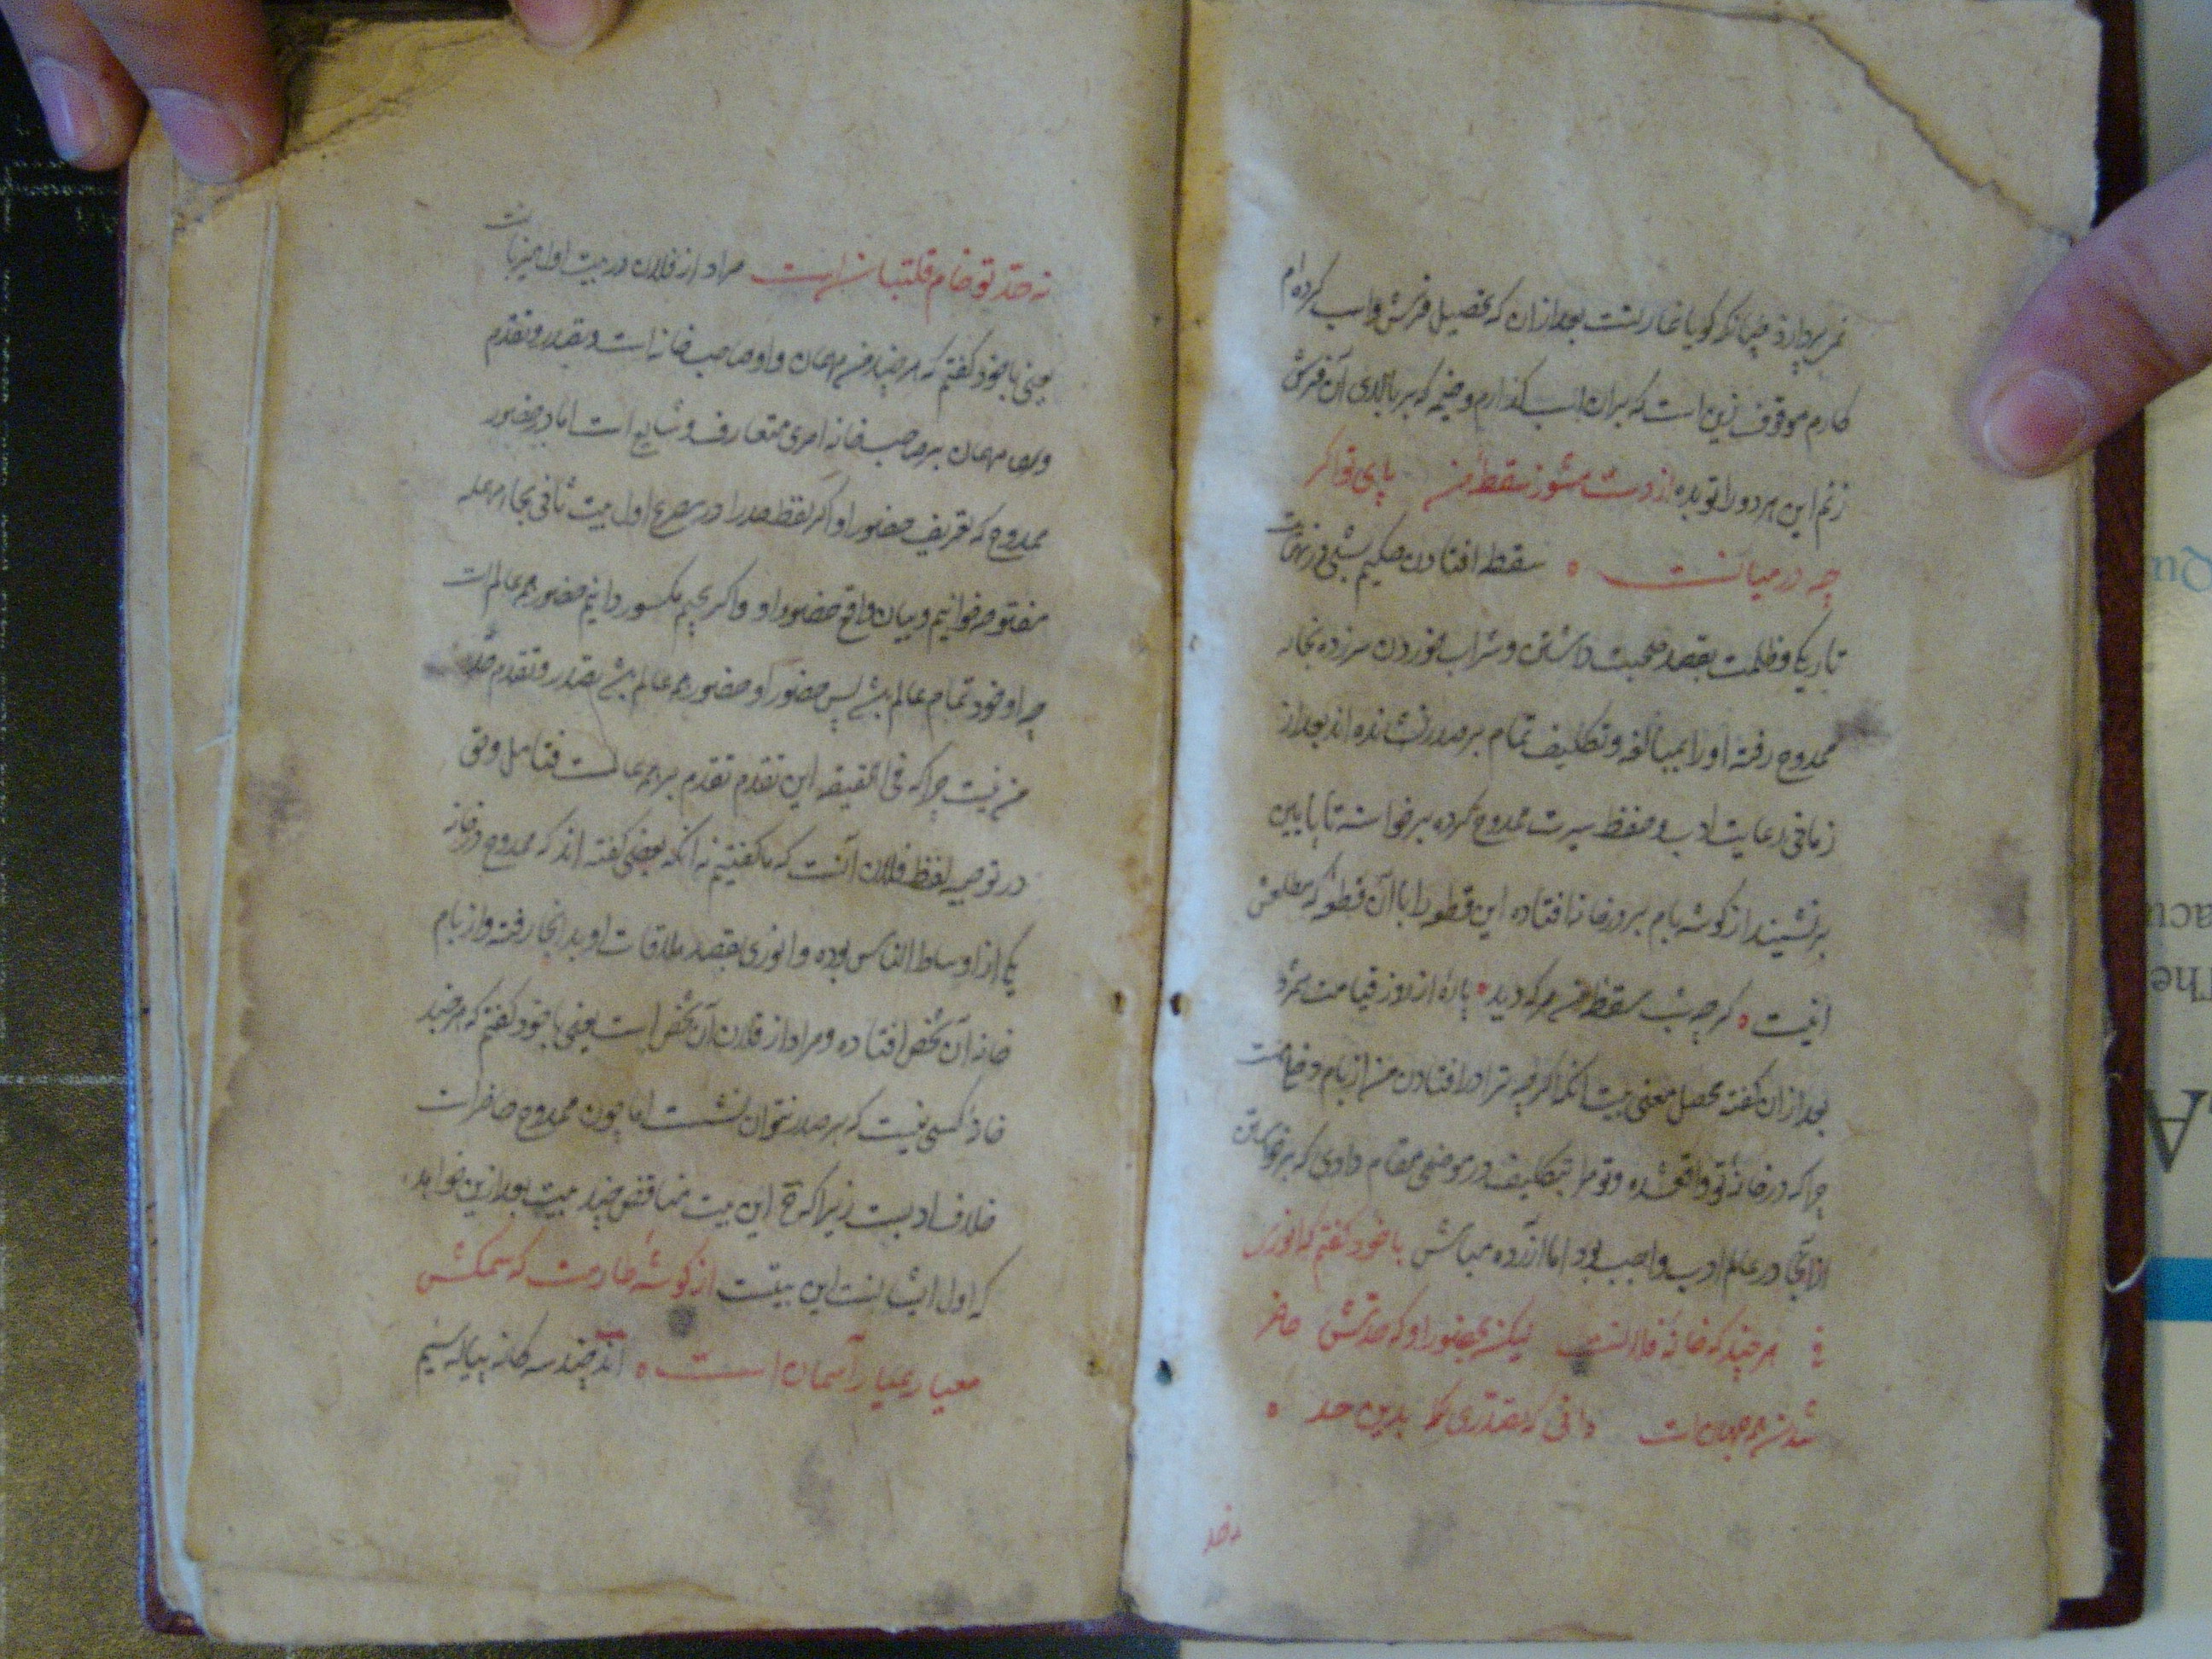 نمی‌پردازد چنانکه گویا بخار پشت بعد از آن که تحصیل فرش و اسب کرده‌ام
کارم موقوف زین است که بران اسب گذارم و خیمه که بر بالای آن فرش
زنم این هر دو را تو بده از دست مشو ز سقطهٔ من پای تو اگر
چه در میانست سقطه افتادن حکیم شبی در نهایت
تاریکی و ظلمت بقصد صحبت داشتن و شراب خوردن سرزده بخانه
ممدوح رفته او را بمبالغه و تکلیف تمام بر صدر نشانده اند بعد از
زمانی رعایت ادب و حفظ سیرت ممدوح کرده برخواسته تا پایین
بر نشیند از گوشه بام بر در خانه افتاده این قطعه را با آن قطعه که مطلعش
اینست گرچه شب سقطهٔ من هر که دید پارهٔ از روز قیامت شمرد
بعد از آن گفته محصل معنی بیت آنکه اگرچه ترا در افتادن من از بام دخلیست
چرا که در خانه تو واقع شده و تو مرا بتکلیف در موضعی مقام دادی که برخواستن
از آنجا در عالم ادب واجب بود اما آزرده مباش با خود گفتم که انوری
هی هر چند که خانهٔ فلانست لیکن بحضور او که حدش حاضر
شدن همه جهان است دانی که تصدری کما بدین حد
نه حد
نه حد تو خام قلتبان است مراد از فلان در بیت اول میزبانست
یعنی با خود گفتم که هر چند من مهمان و او صاحب خانه است و تصدر و تقدم
مهمان بر صاحب خانه امری متعارف و شایع است اما در حضور
ممدوح که تعریف حضور او اگر لفظ صدرا در مصرع اول بیت ثانی بحاء مهمله
مفتوحه خوانیم و بیان واقع حضور او و اگر بجیم مکسور دانیم حضور همه عالم است
چه او خود تمام عالم باشد پس حضور او حضور همه عالم باشد تصدر و تقدم حد
من نیست چرا که فی الحقیقه این تقدم تقدم بر همه عالمست فتامل و حق
در توجیه لفظ فلان آنست که ما گفتیم نه آنکه بعضی گفته اند که ممدوح در خانه
یکی از اوساط الناس بوده و انوری بقصد ملاقات او بدانجا رفته و از بام
خانه آن شخص افتاده و مراد از فلان آن شخص است یعنی با خود گفتم که هر چند
خانهٔ کسی نیست که بر صدر نتوان نشست اما چون ممدوح حاضر است
خلاف ادبست زیرا که این بیت مناقض چند بیت بعد ازین خواهد
که اول ایشانست این بیتست از گوشهٔ طارمت که سمکش
معیار عیار آسمان است اند چند سه گانه پیاله سیم